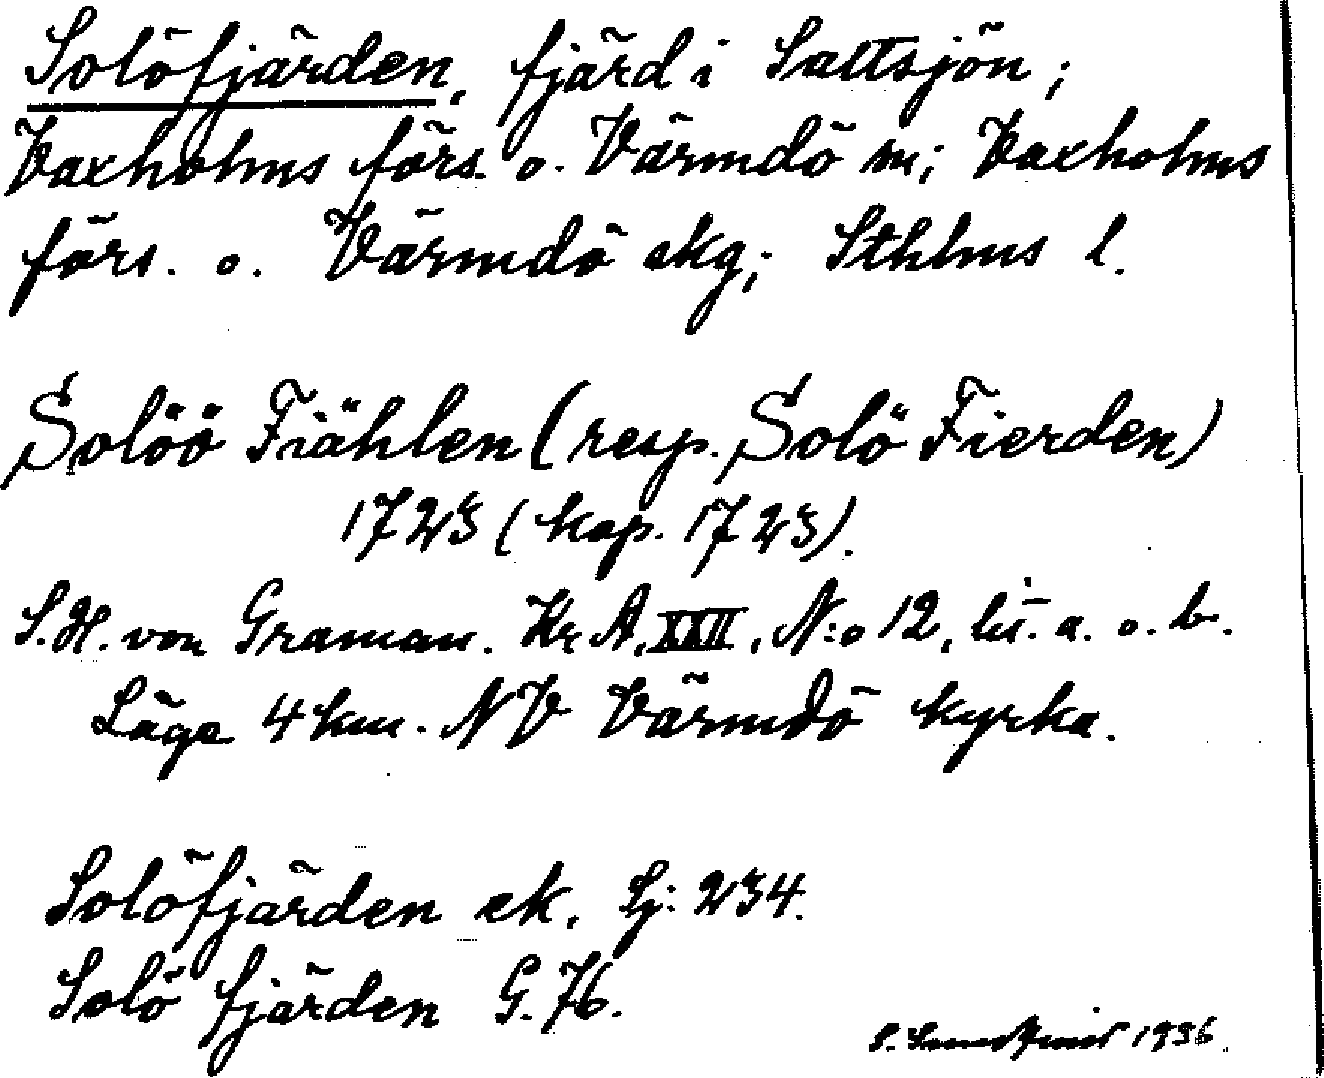 Solöfjärden, fjärd i Saltsjön;
Vaxholms förs. o. Värmdö sn; Vaxholms
förs. o. Värmdö skg; Sthlms l.
Solöö Fiählen (resp. Solö Fierden)
1723 (kop. 1723).
S.H. von Graman. Kr A, XXII, N:o 12, lit. a. o. b.
Läge 4 km. NV Värmdö kyrka.
Solöfjärden ek. Sj: 234.
Solö fjärden G. 76.
S. 1936.